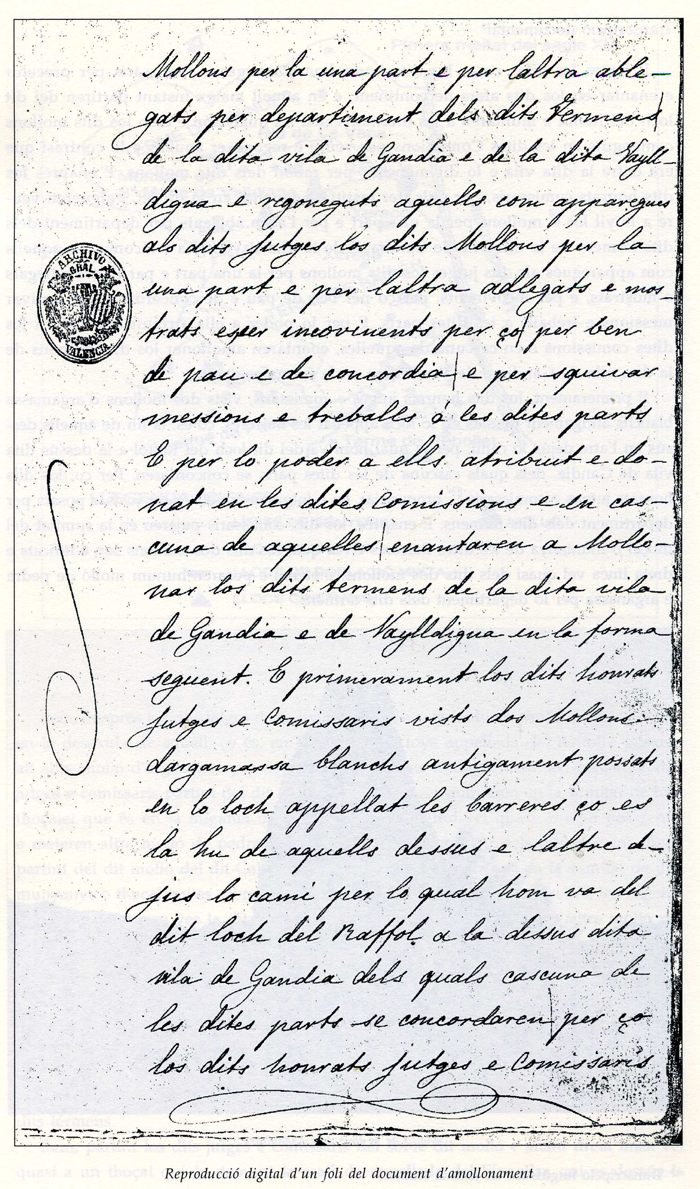 Mollons per la una part e per laltra able-
gats per departiment dels dits termens
de la dita vila de Gandia e de la dita Vayll-
digna e regoneguts aquells com apparegues
als dits Jutges los dits Mollons per la
una part e per laltra adlegats e mos-
trats esser incovinents per ço per ben
de pau e de concordia e per squivar
messions e treballs a les dites parts
E per lo poder a ells atribuit e do-
nat en les dites Comissions e en cas-
cuna de aquelles enantaren a Mollo-
nar los dits termens de la dita vila
de Gandia e de Vaylldigna en la forma
seguent. E primerament los dits honrats
Jutges e Comissaris vists dos Mollons
dargamassa blanchs antigament possats
en lo loch appellat les barreres ço es
la hu de aquells dessus e laltre de-
jus lo cami per lo qual hom va del
dit loch del Raffol a la dessus dita
vila de Gandia dels quals cascuna de
les dites parts se concordaren per ço
los dits honrats Jutges e Comissaris
ARCHIVO
GRAL
VALENCIA
Reproducció digital d'un foli del document d'amollonament